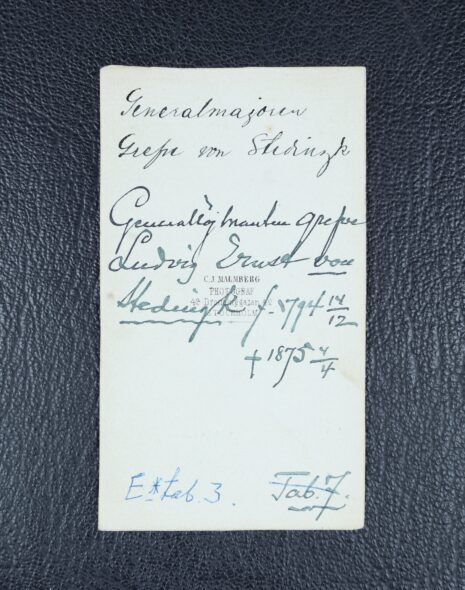 Generalmajoren
Grefve von Stedingk
Generallöjtnanten grefve
Ludvig Ernst von
C.J MALMBERG
PHOTOGRAF
42 Drottninggatan 42
STOCKHOLM
Stedingk f. 1794 14/12
† 1875 4/4
E* tab. 3.
Tab. 7.